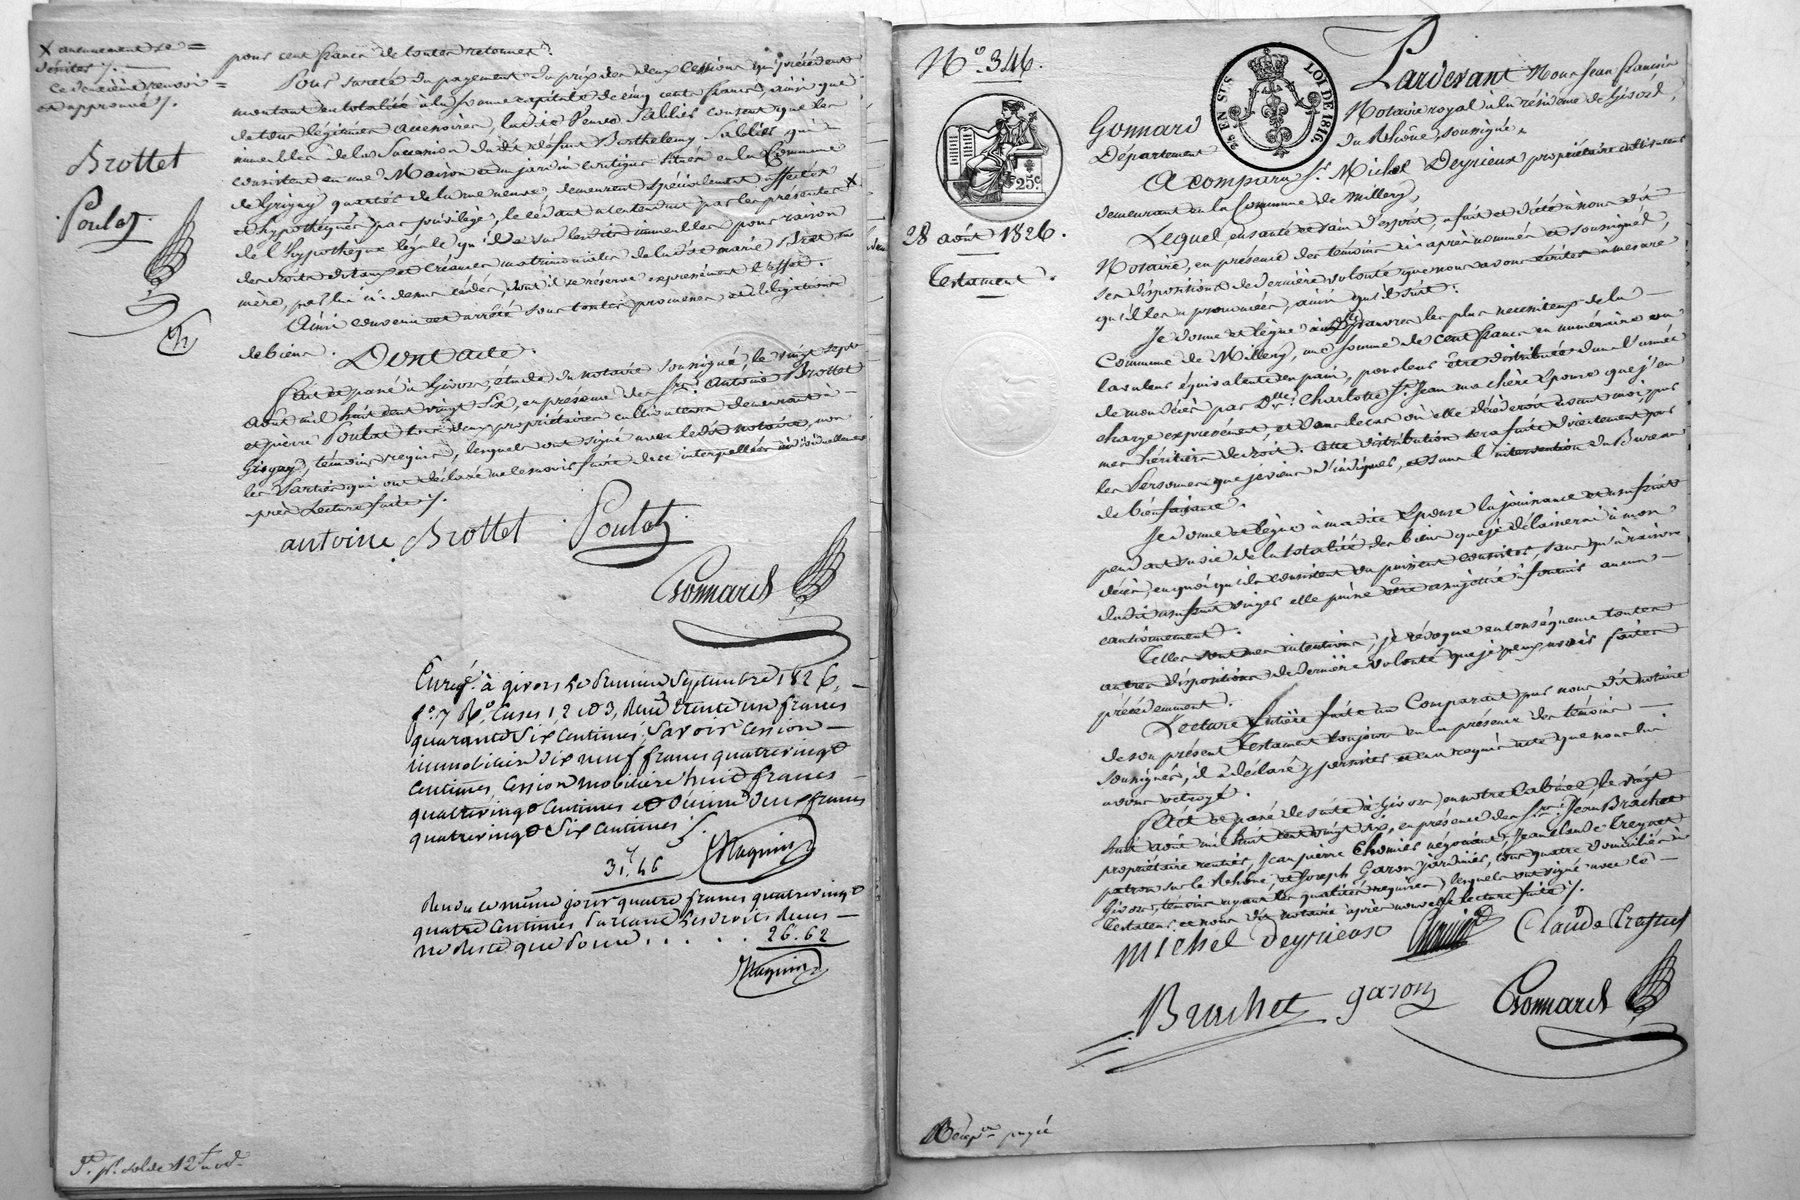 X aucunement se =
désister ./.
ce deuxième renvoi =
est approuvé ./.
Brottet
Poulat
pour cent francs de toutes retenues.
Pour sureté du payement du prix des deux Cessions qui précèdent
montant en totalité à la somme capitale de cinq cents francs ainsi que
de tous légitimes accessoires, ladite Veuve Sablier consent que les
immeubles de la Succession dudit défunt Barthelemy Sablier qui
consistent en une Maison et un jardin contigus situés en la Commune
de Grigny quartier de la rue neuve, demeurent spécialement affectés
et hypothéqués par privilège, le cédant n'entendant par les présentes X
de l'hypothèque légale qu'il a sur lesdits immeubles pour raison
des droits dotaux et créances matrimoniales de ladite marie Brot sa
mère, par lui ci-dessus cédés, dont il se réserve expressément l'effet.
Ainsi convenu et arrêté sous toutes promesses et obligations
de biens. Dont acte.
Fait et passé à Givors, étude du notaire soussigné, le vingt sept
août mil huit cent vingt six, en présence des Srs. Antoine Brottet
et pierre Poulat tous deux propriétaires cultivateurs demeurant à
Grigny, témoins requis, lesquels ont signé avec ledit notaire, non
les Parties qui ont déclaré ne le savoir faire de ce interpellées individuellement
après Lecture faite ./.
antoine Brottet Poulat
Gonnard
Enregé. à givors le premier Septembre 1826,
fo. 7 Ro. Cases 1, 2 et 3, Reçu trente un francs
quarante Six Centimes; Savoir Cession
immobilière dix neuf francs quatrevingt
Centimes, Cession mobilière huit francs
quatrevingt Centimes et Décime deux francs
quatrevingt Six Centimes ./.
31. 46
Maguin
Rendu ce même jour quatre francs quatrevingt
quatre Centimes sur les droits Reçus
ne reste que pour . . . . . 26. 62
Maguin
No. 346.
25c.
28 août 1826.
Testament.
¼ EN SUS
LOI DE 1816.
Pardevant Nous Jean francois
Gonnard Notaire royal à la résidence de Givors,
Département du Rhône, soussigné,
A comparu Sr. Michel Deyrieux propriétaire cultivateur
demeurant en la Commune de Millery,
Lequel, en santé et sain d'esprit, a fait et dicté à nous dit
Notaire, en présence des témoins ci-après nommés et soussignés,
ses dispositions de dernière volonté que nous avons écrites à mesure
qu'il les a prononcées, ainsi qu'il suit:
Je donne et lègue aux pauvres les plus necessiteux de la
Commune de Millery, une somme de cent francs en numéraire ou
la valeur équivalente en pain, pour leur être distribuée dans l'année
de mon décès par Dlle. Charlotte St. Jean ma chère Epouse que j'en
charge expressément, et dans le cas où elle décéderoit avant moi, par
mes héritiers de droit. Cette distribution sera faite directement par
les Personnes que je viens d'indiquer, et sans l'intervention du Bureau
de bienfaisance.
Je donne et lègue à madite Epouse la jouissance et usufruit
pendant sa vie de la totalité des biens que je délaisserai à mon
décès, en quoi qu'ils consistent ou puissent consister, sans qu'à raison
dudit usufruit viager elle puisse être assujettie à fournir aucun
cautionnement.
Telles sont mes intentions, je révoque en conséquence toutes
autres dispositions de dernière volonté que je peux avoir faites
précédemment.
Lecture entière faite au Comparant par nous dit notaire
de son présent Testament toujours en la présence des témoins
soussignés, il a déclaré y persister et en a requis acte que nous lui
avons octroyé.
Fait et passé de suite à Givors, en notre Cabinet, le vingt
huit août mil huit cent vingt six, en présence des Srs. Jean Brachet
propriétaire rentier, Jean pierre Thomier négociant, Jean claude Tresput
patron sur le Rhône, et Joseph Garon jardinier, tous quatre domiciliés à
Givors, témoins ayant les qualités requises, lesquels ont signé avec le
Testateur, et nous dit notaire après nouvelle lecture faite ./.
Michel deyrieux Claude Tresput
Brachet garon Gonnard